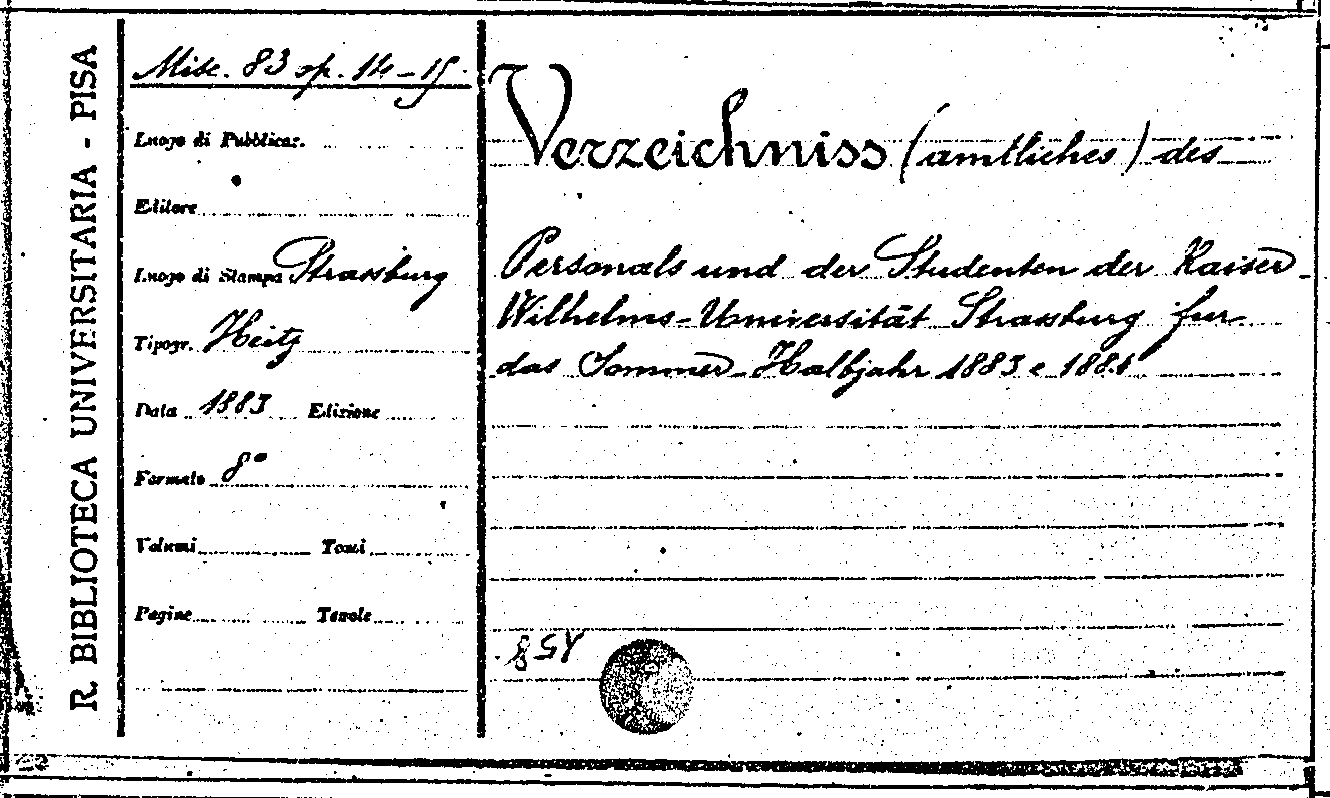 R. BIBLIOTECA UNIVERSITARIA - PISA
Misc. 83 op. 14-15.
Luogo di Pubblicaz.
Editore
Luogo di Stampa Strassburg
Tipogr. Heitz
Data 1883 Edizione
Formato 8°
Volumi Tomi
Pagine Tavole
Verzeichniss (amtliches) des
Personals und der Studenten der Kaiser
Wilhelms-Universität Strassburg fur
das Sommer-Halbjahr 1883 e